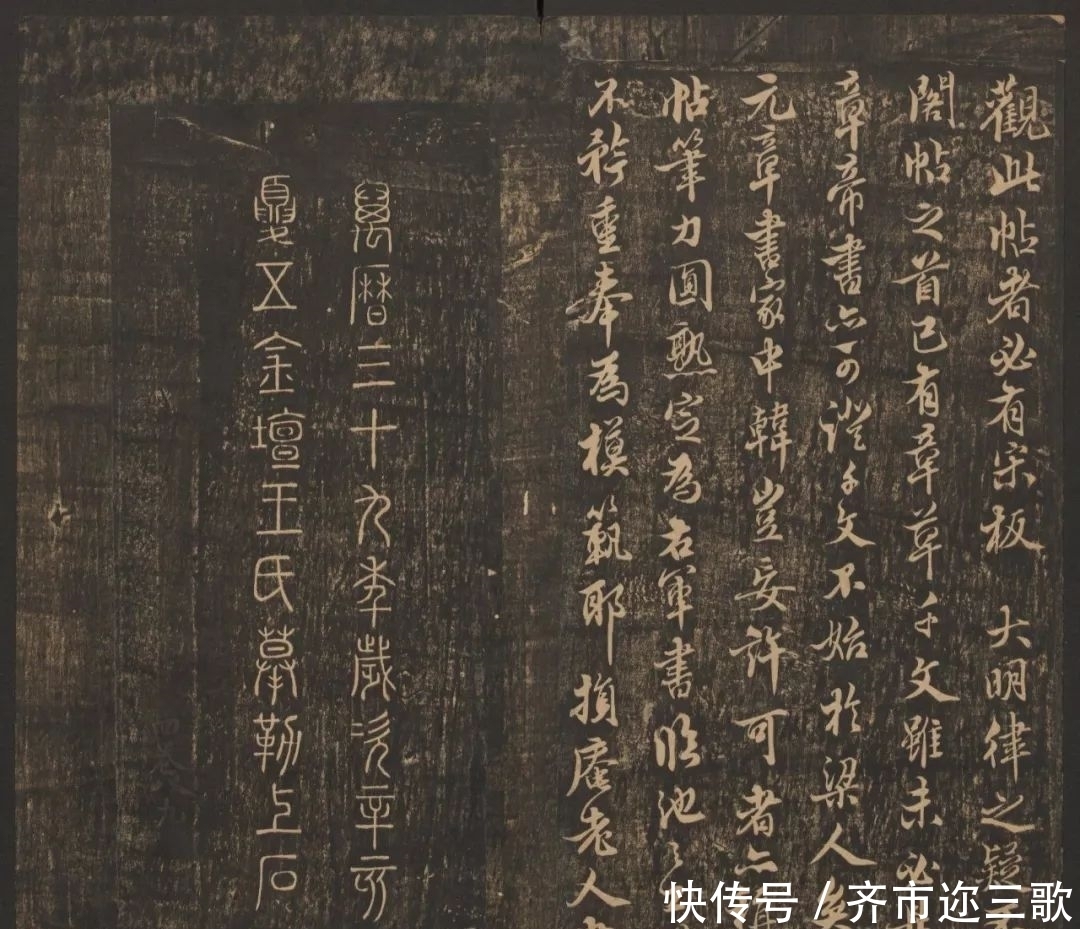 觀此帖者必有宋板 大明律之疑
閣帖之首已有章草千文雖未必
章帝書亦可證千文不始於梁人矣
元章書家中韓豈妄許可者亦謂
帖筆力圓熟定為右軍書臨池之
不矜重奉為模範耶 損庵老人
萬曆三十九年歲次辛亥
夏五金壇王氏摹勒上石
快传号 / 齐市迩三歌